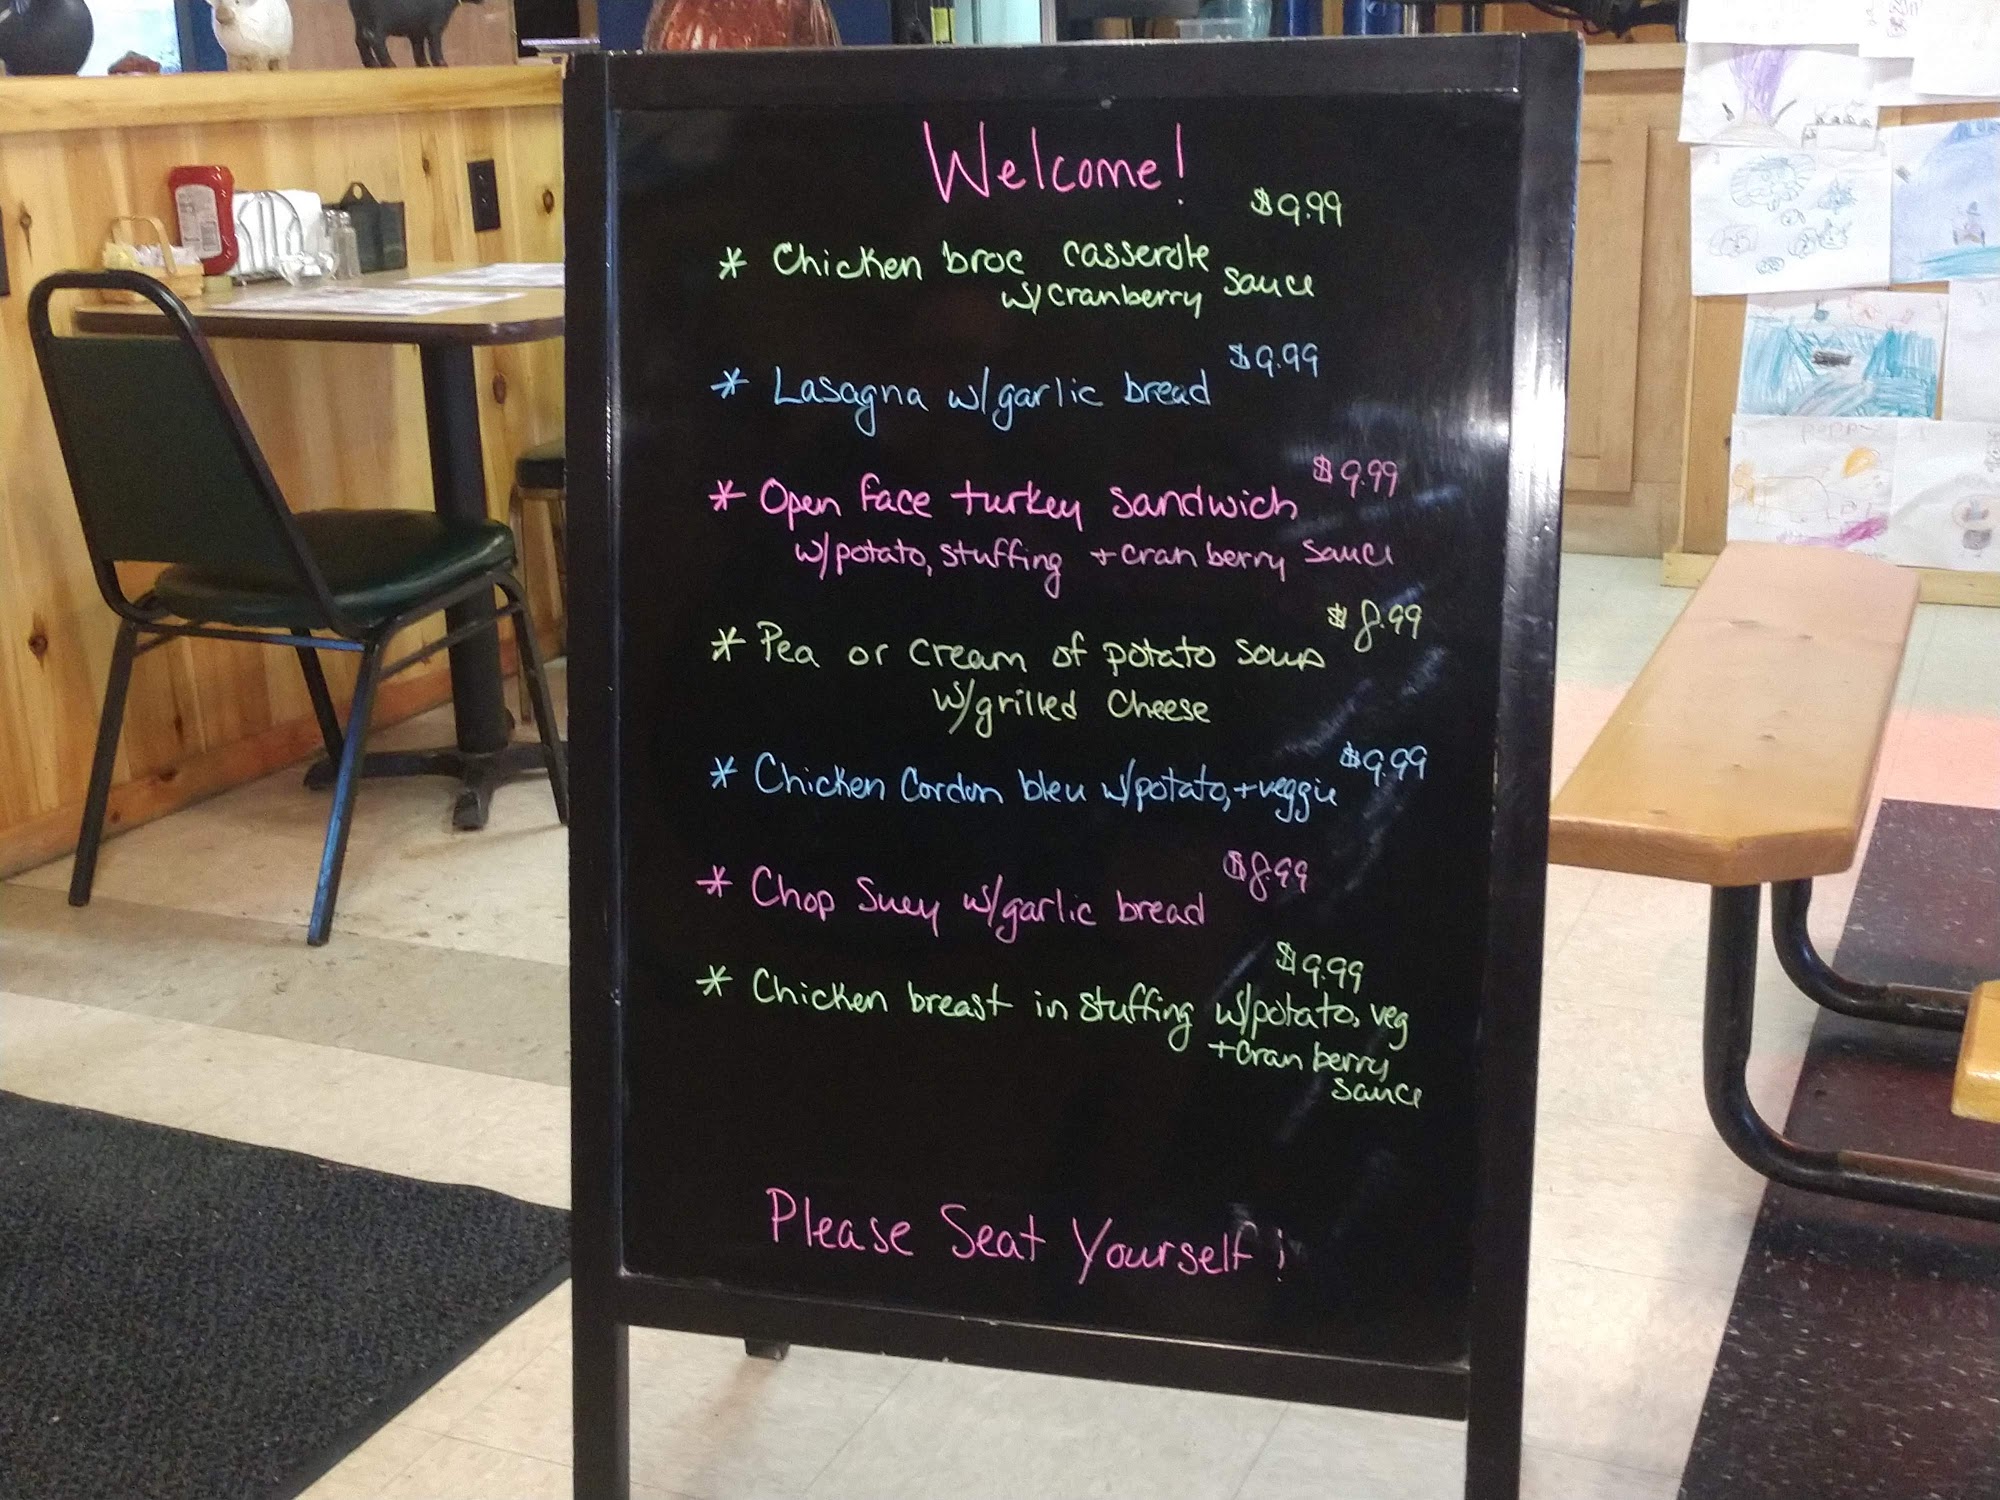 Welcome!
$9.99
* Chicken broc casserole
w/cranberry sauce
$9.99
* Lasagna w/garlic bread
$9.99
* Open face turkey sandwich
w/potato, stuffing + cranberry sauce
$8.99
* Pea or cream of potato soup
w/grilled cheese
$9.99
* Chicken Cordon bleu w/potato, + veggie
$8.99
* Chop Suey w/garlic bread
$9.99
* Chicken breast in stuffing w/potato, veg
+ cranberry
sauce
Please Seat Yourself!
POPPY